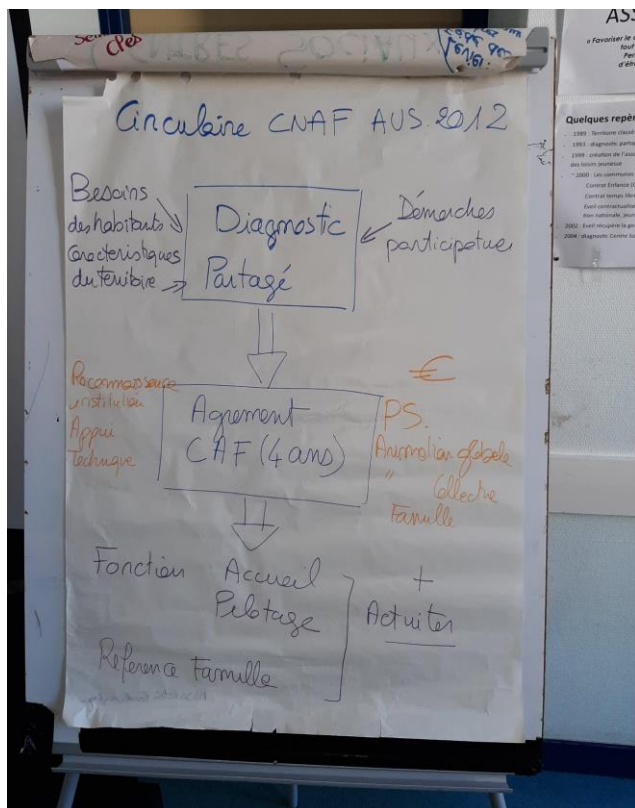 CPES
CENTRES SOCIAUX
Circulaire CNAF AVS 2012
Besoins
des habitants
Caracteristiques
du territoire
Diagnostic
Partagé
Démarches
participatives
Reconnaissance
institution
Appui
Technique
Agrement
CAF (4 ans)
€
PS.
Animation globale
" Collective
Famille
Fonction Accueil
Pilotage
Réference Famille
+
Activités
ASS
« Favoriser le
tout
Per
d'ê
Quelques repèr
- 1989 : Territoire classé
- 1993 : diagnostic partag
- 1999 : création de l'asso
des loisirs jeunesse
- 2000 : Les communes
Contrat Enfance (
Contrat temps libre
Eveil contractualise
Bon nationale, jeun
2002 : Eveil récupère la ge
2004 : diagnostic Centre So